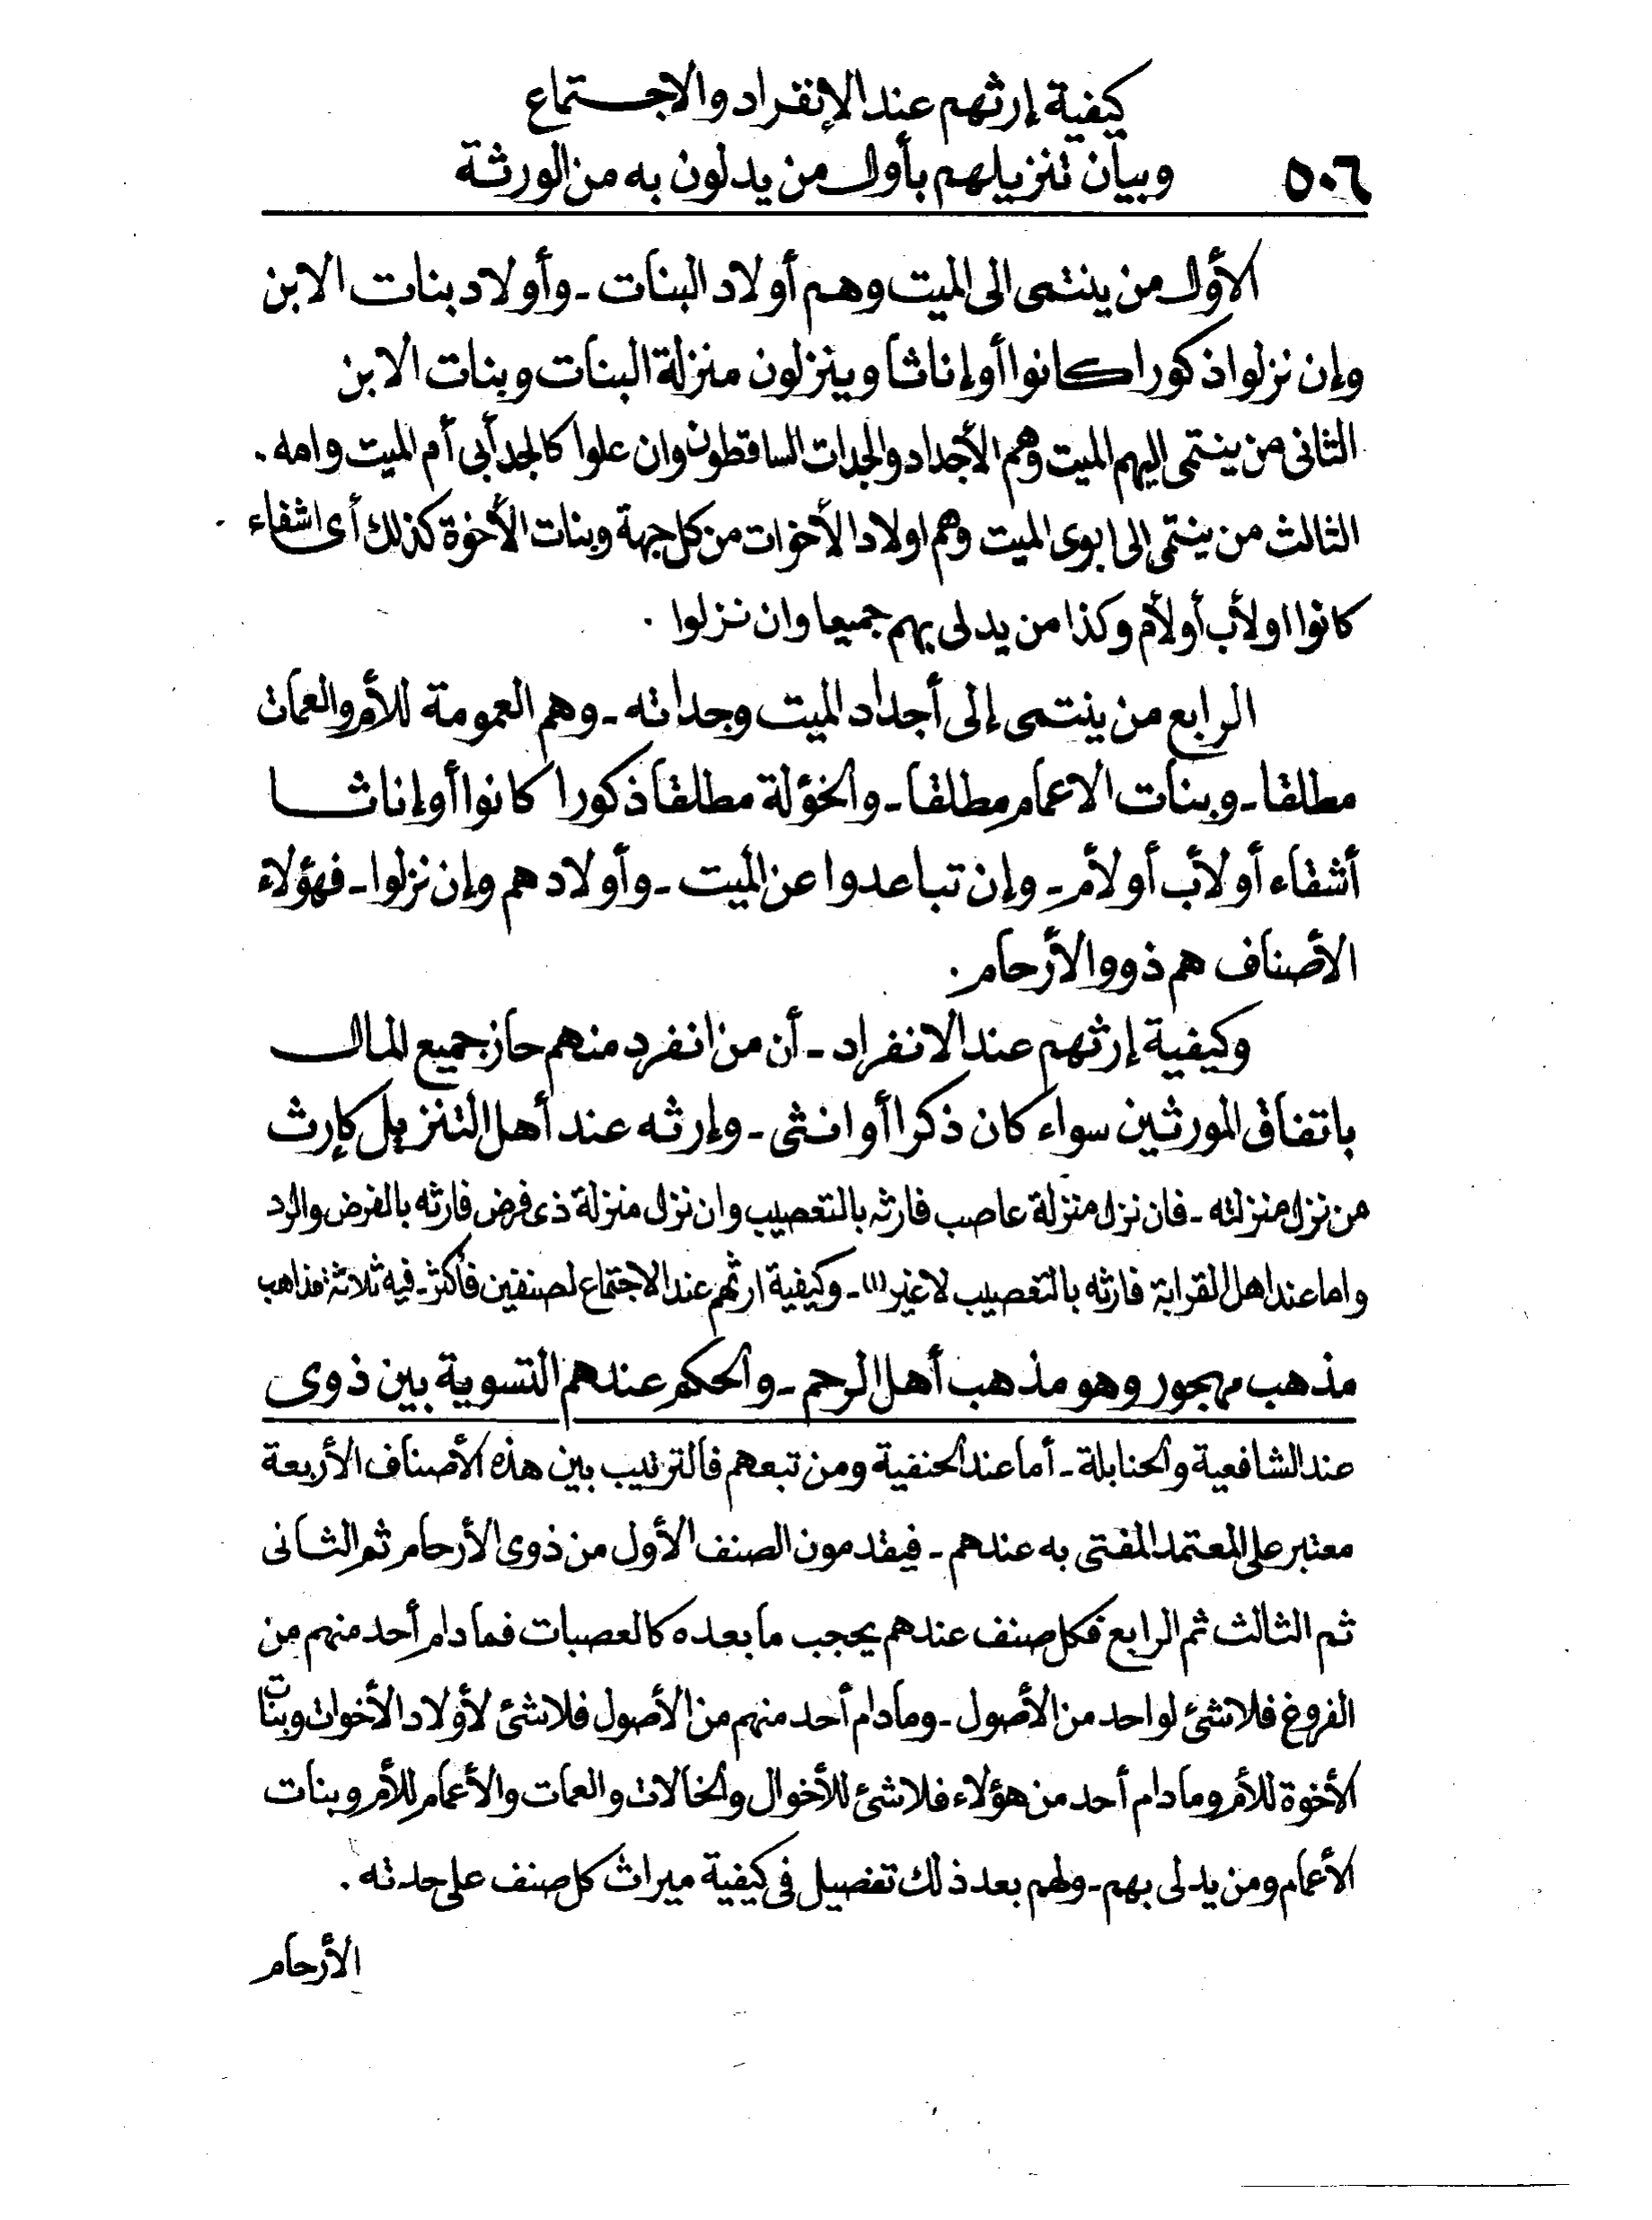 كيفية إرثهم عند الإنفراد والاجتماع
٥٠٦ وبيان تنزيلهم بأول من يدلون به من الورثة
الأول من ينتمى الى الميت وهم أولاد البنات - وأولاد بنات الابن
وإن نزلوا ذكورا كانوا أو إناثا وينزلون منزلة البنات وبنات الابن
الثانى من ينتمى اليهم الميت وهم الأجداد والجدات الساقطون وان علوا كالجد أبى أم الميت وامه .
الثالث من ينتمى الى ابوى الميت وهم اولاد الأخوات من كل جهة وبنات الأخوة كذلك أى اشقاء
كانوا اولأب أولأم وكذا من يدلى بهم جميعا وان نزلوا .
الرابع من ينتمى إلى أجداد الميت وجداته - وهم العمومة للأم والعمات
مطلقا - وبنات الاعمام مطلقا - والخؤلة مطلقا ذكورا كانوا أو إناثا
أشقاء أو لأب أو لأم - وإن تباعدوا عن الميت - وأولادهم وإن نزلوا - فهؤلاء
الأصناف هم ذووا الأرحام .
وكيفية إرثهم عند الانفراد - أن من انفرد منهم حاز جميع المال
باتفاق المورثين سواء كان ذكرا أو انثى - وإرثه عند أهل التنزيل كإرث
من نزل منزلته - فان نزل منزلة عاصب فارثه بالتعصيب وان نزل منزلة ذى فرض فارثه بالفرض والرد
واما عند اهل القرابة فارثه بالتعصيب لاغير (١) - وكيفية ارثهم عند الاجتماع لصنفين فأكثر - فيه ثلاثة مذاهب
مذهب مهجور وهو مذهب أهل الرحم - والحكم عندهم التسوية بين ذوى
عند الشافعية والحنابلة - أما عند الحنفية ومن تبعهم فالترتيب بين هذه الأصناف الأربعة
معتبر على المعتمد المفتى به عندهم - فيقدمون الصنف الأول من ذوى الأرحام ثم الثانى
ثم الثالث ثم الرابع فكل صنف عندهم يحجب ما بعده كالعصبات فما دام أحد منهم من
الفروع فلاشئ لواحد من الأصول - ومادام أحد منهم من الأصول فلاشئ لأولاد الأخوات وبنات
الأخوة للأم وما دام أحد من هؤلاء فلاشئ للأخوال والخالات والعمات والأعمام للأم وبنات
الأعمام ومن يدلى بهم - ولهم بعد ذلك تفصيل فى كيفية ميراث كل صنف على حدته .
الأرحام